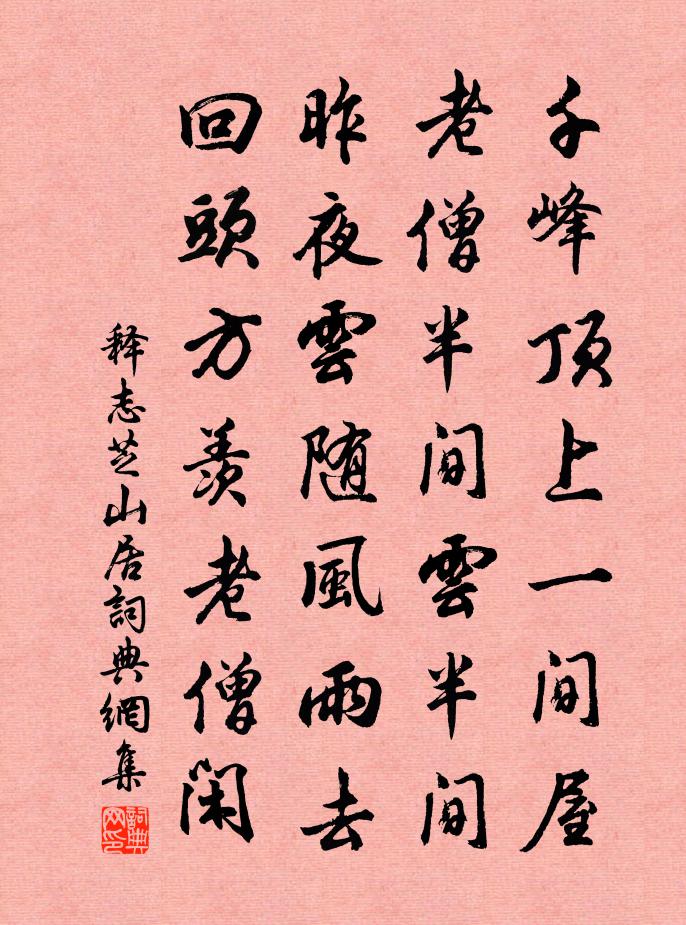 千峰顶上一间屋
老僧半间雲半间
昨夜雲随風雨去
回頭方羡老僧闲
释志芝山居詞典網集
詞典网印